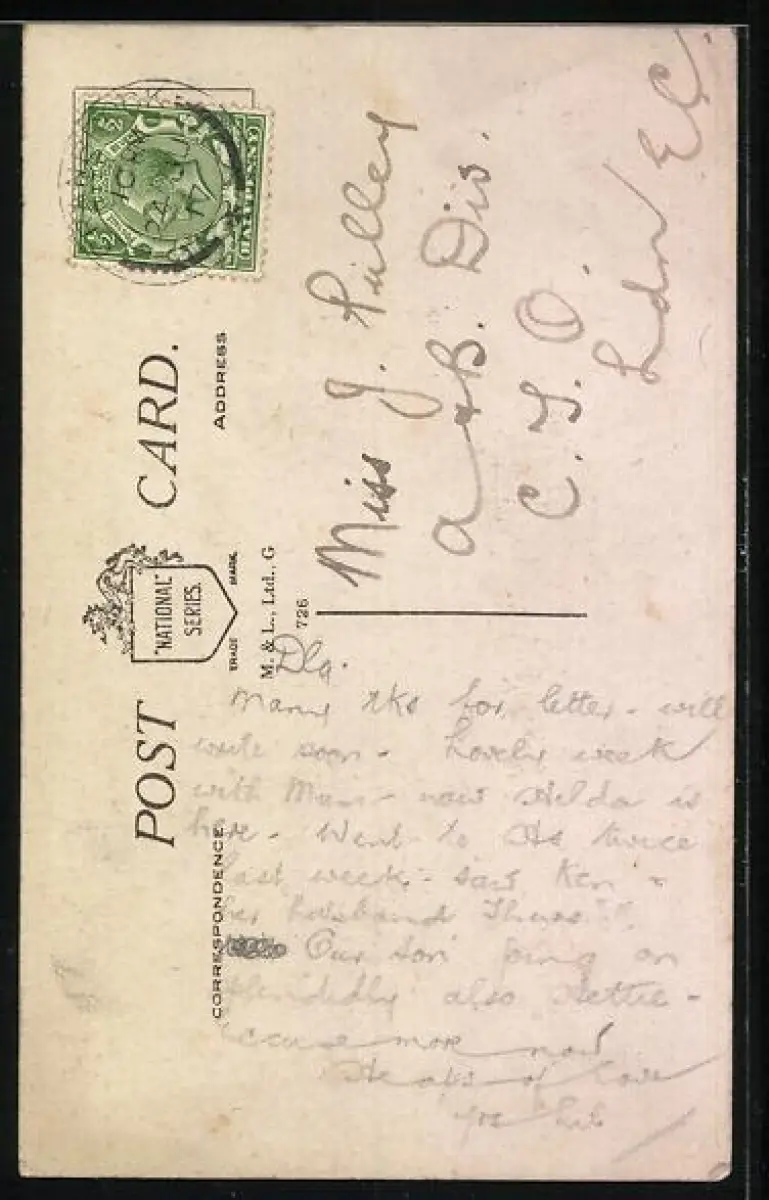 POST CARD.
"NATIONAL"
SERIES.
TRADE MARK
M. & L., Ltd., G
726
CORRESPONDENCE
ADDRESS
½ ½
HALFPENNY
Miss J. Pulley
a & B. Div.
C. T. O.
Ldn E C.
Dla.
Many tks for letter - will
write soon - Lovely week
with Mum - now Hilda is
here - Went to twice
last week - saw Ken &
her husband Thurs
Our son going on
splendidly also Hettie -
'cause more now
Heaps of love
yrs